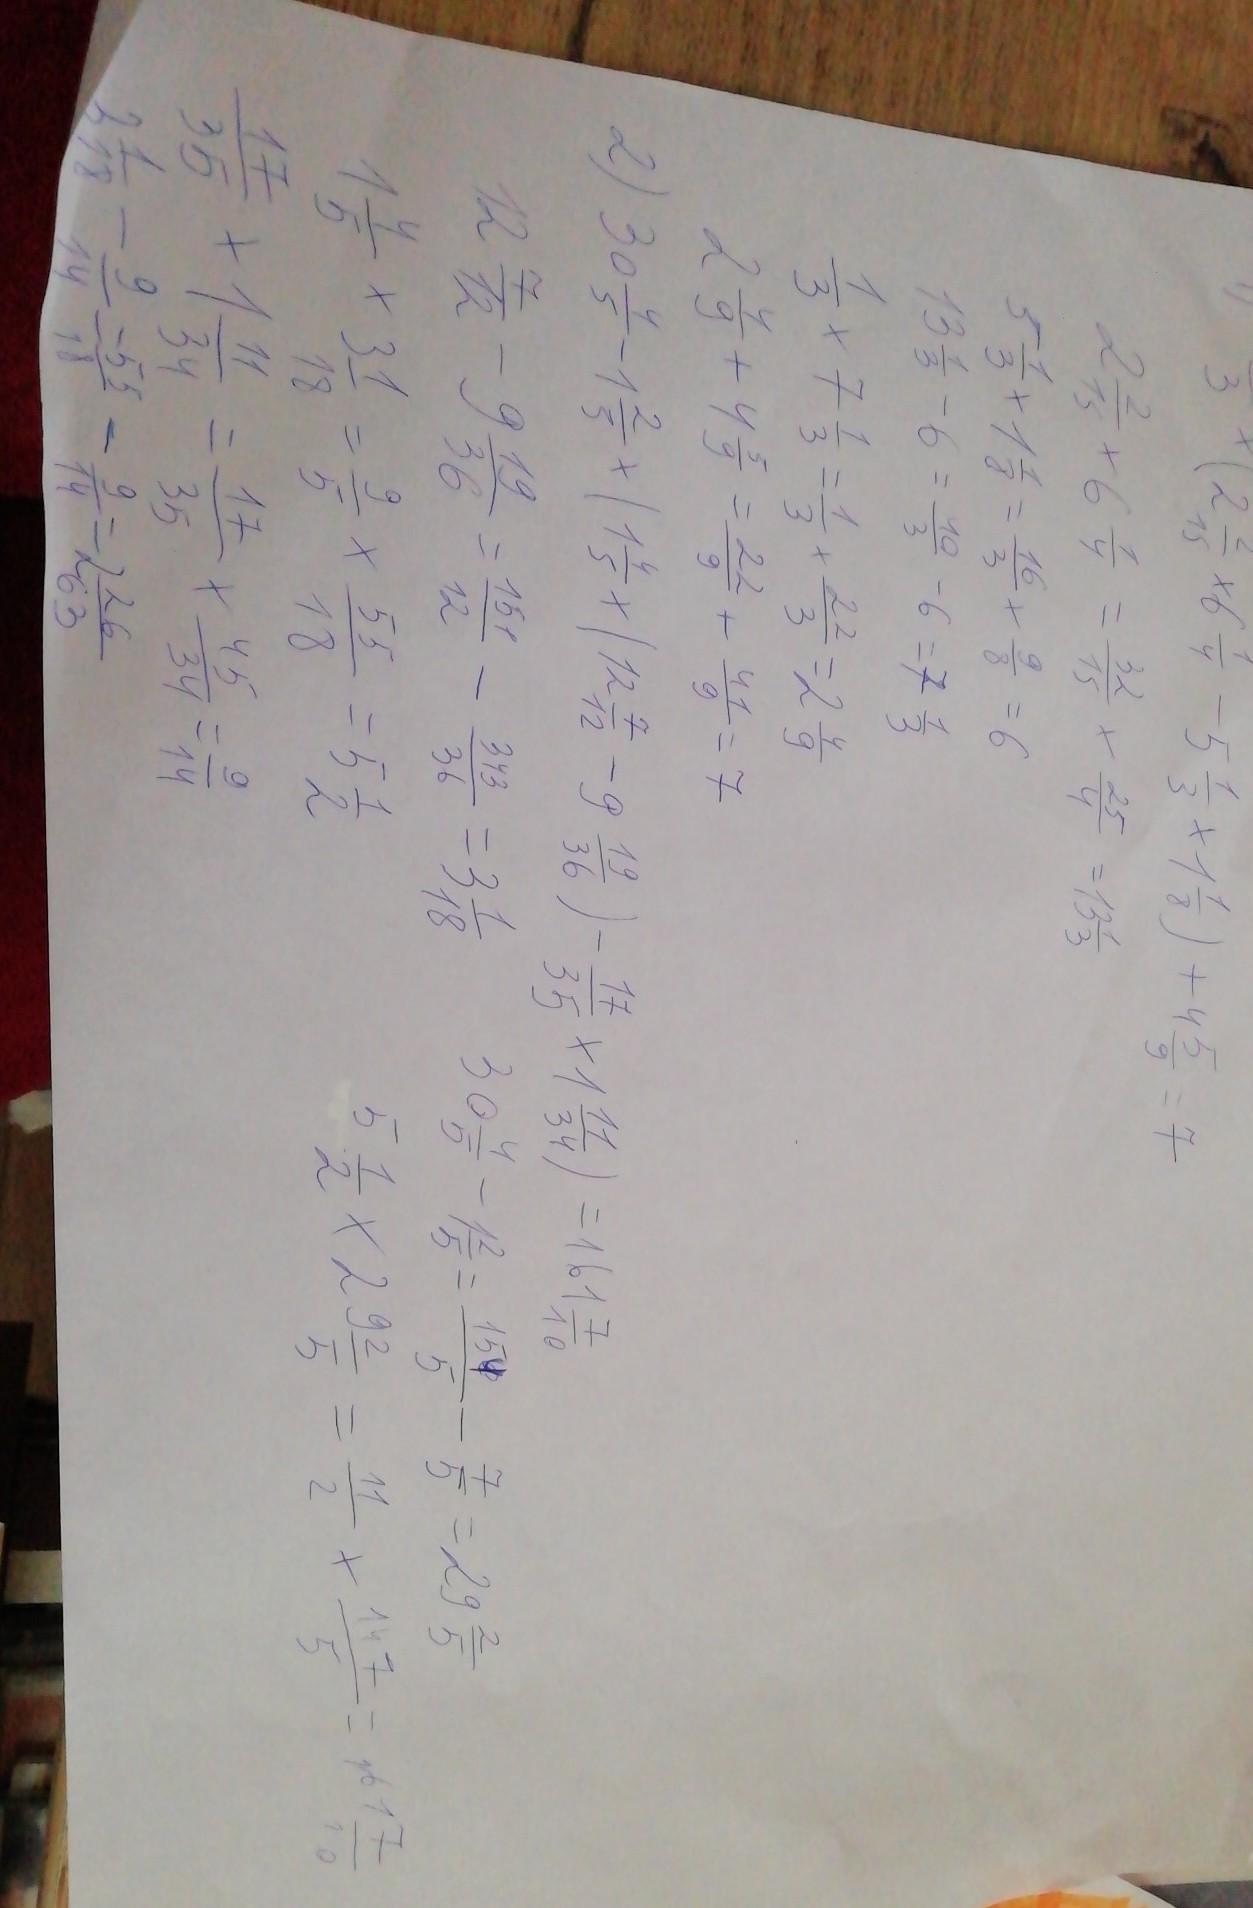 1/3 × (2 2/15 × 6 1/4 - 5 1/3 × 1 1/8) + 4 5/9 = 7
2 2/15 × 6 1/4 = 32/15 × 25/4 = 13 1/3
5 1/3 × 1 1/8 = 16/3 × 9/8 = 6
13 1/3 - 6 = 40/3 - 6 = 7 1/3
1/3 × 7 1/3 = 1/3 × 22/3 = 2 4/9
2 4/9 + 4 5/9 = 22/9 + 41/9 = 7
2) 30 4/5 - 1 2/5 × (1 4/5 × (12 7/12 - 9 19/36) - 17/35 × 1 11/34) = 161 7/10
12 7/12 - 9 19/36 = 151/12 - 343/36 = 3 1/18
1 4/5 × 3 1/18 = 9/5 × 55/18 = 5 1/2
17/35 × 1 11/34 = 17/35 × 45/34 = 9/14
3 1/18 - 9/14 = 55/18 - 9/14 = 2 26/63
30 4/5 - 1 2/5 = 154/5 - 7/5 = 29 2/5
5 1/2 × 29 2/5 = 11/2 × 147/5 = 161 7/10